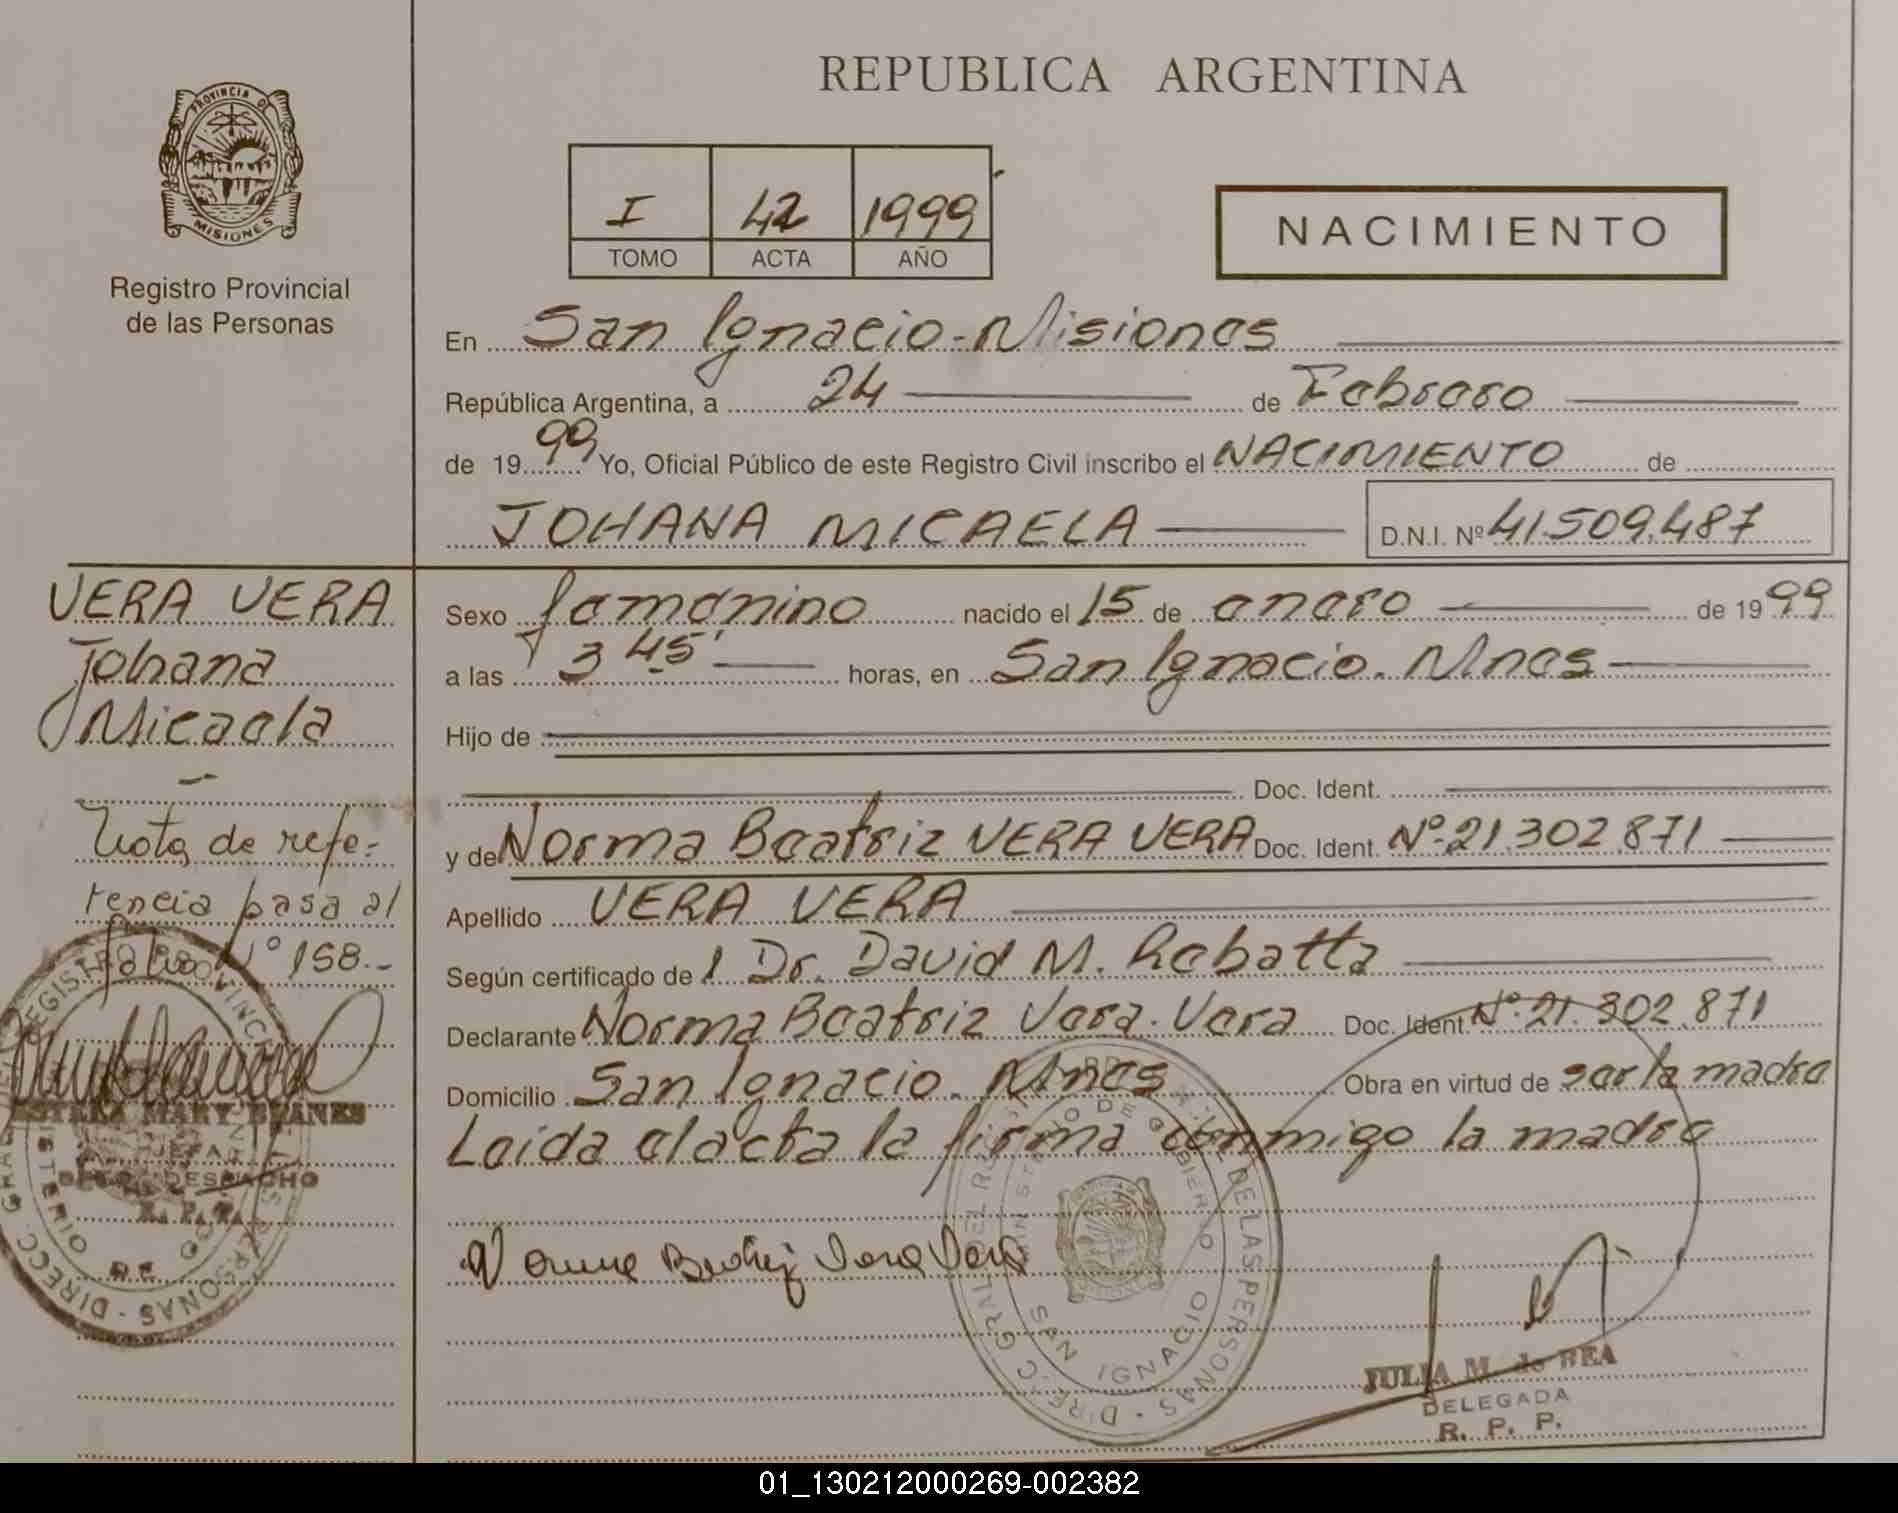 REPUBLICA ARGENTINA
PROVINCIA D
MISIONES
Registro Provincial
de las Personas
I 42 1999
TOMO ACTA AÑO
NACIMIENTO
En San Ignacio-Misiones
República Argentina, a 24 de Febrero
de 1999 Yo, Oficial Público de este Registro Civil inscribo el NACIMIENTO de
JOHANA MICAELA D.N.I. Nº 41.509.487
VERA VERA
Johana
Micaela
Nota de refe-
rencia pasa al
folio Nº 158.-
ESTHER MARY
JEFA
DESPACHO
R. P. P.
Sexo femenino nacido el 15 de enero de 1999
a las 3 45' horas, en San Ignacio. Mnes
Hijo de
Doc. Ident.
y de Norma Beatriz VERA VERA Doc. Ident. Nº 21.302.871
Apellido VERA VERA
Según certificado de l Dr. David M. Rabatta
Declarante Norma Beatriz Vera Vera Doc. Ident. Nº 21.302.871
Domicilio San Ignacio. Mnes Obra en virtud de ser la madre
Leida el acta la firma conmigo la madre
Norma Beatriz Vera Vera
DIREC. GRAL. DEL REGISTRO PROVINCIAL DE LAS PERSONAS
MINISTERIO DE GOBIERNO
SAN IGNACIO
JULIA M. de BEA
DELEGADA
R. P. P.
01_130212000269-002382